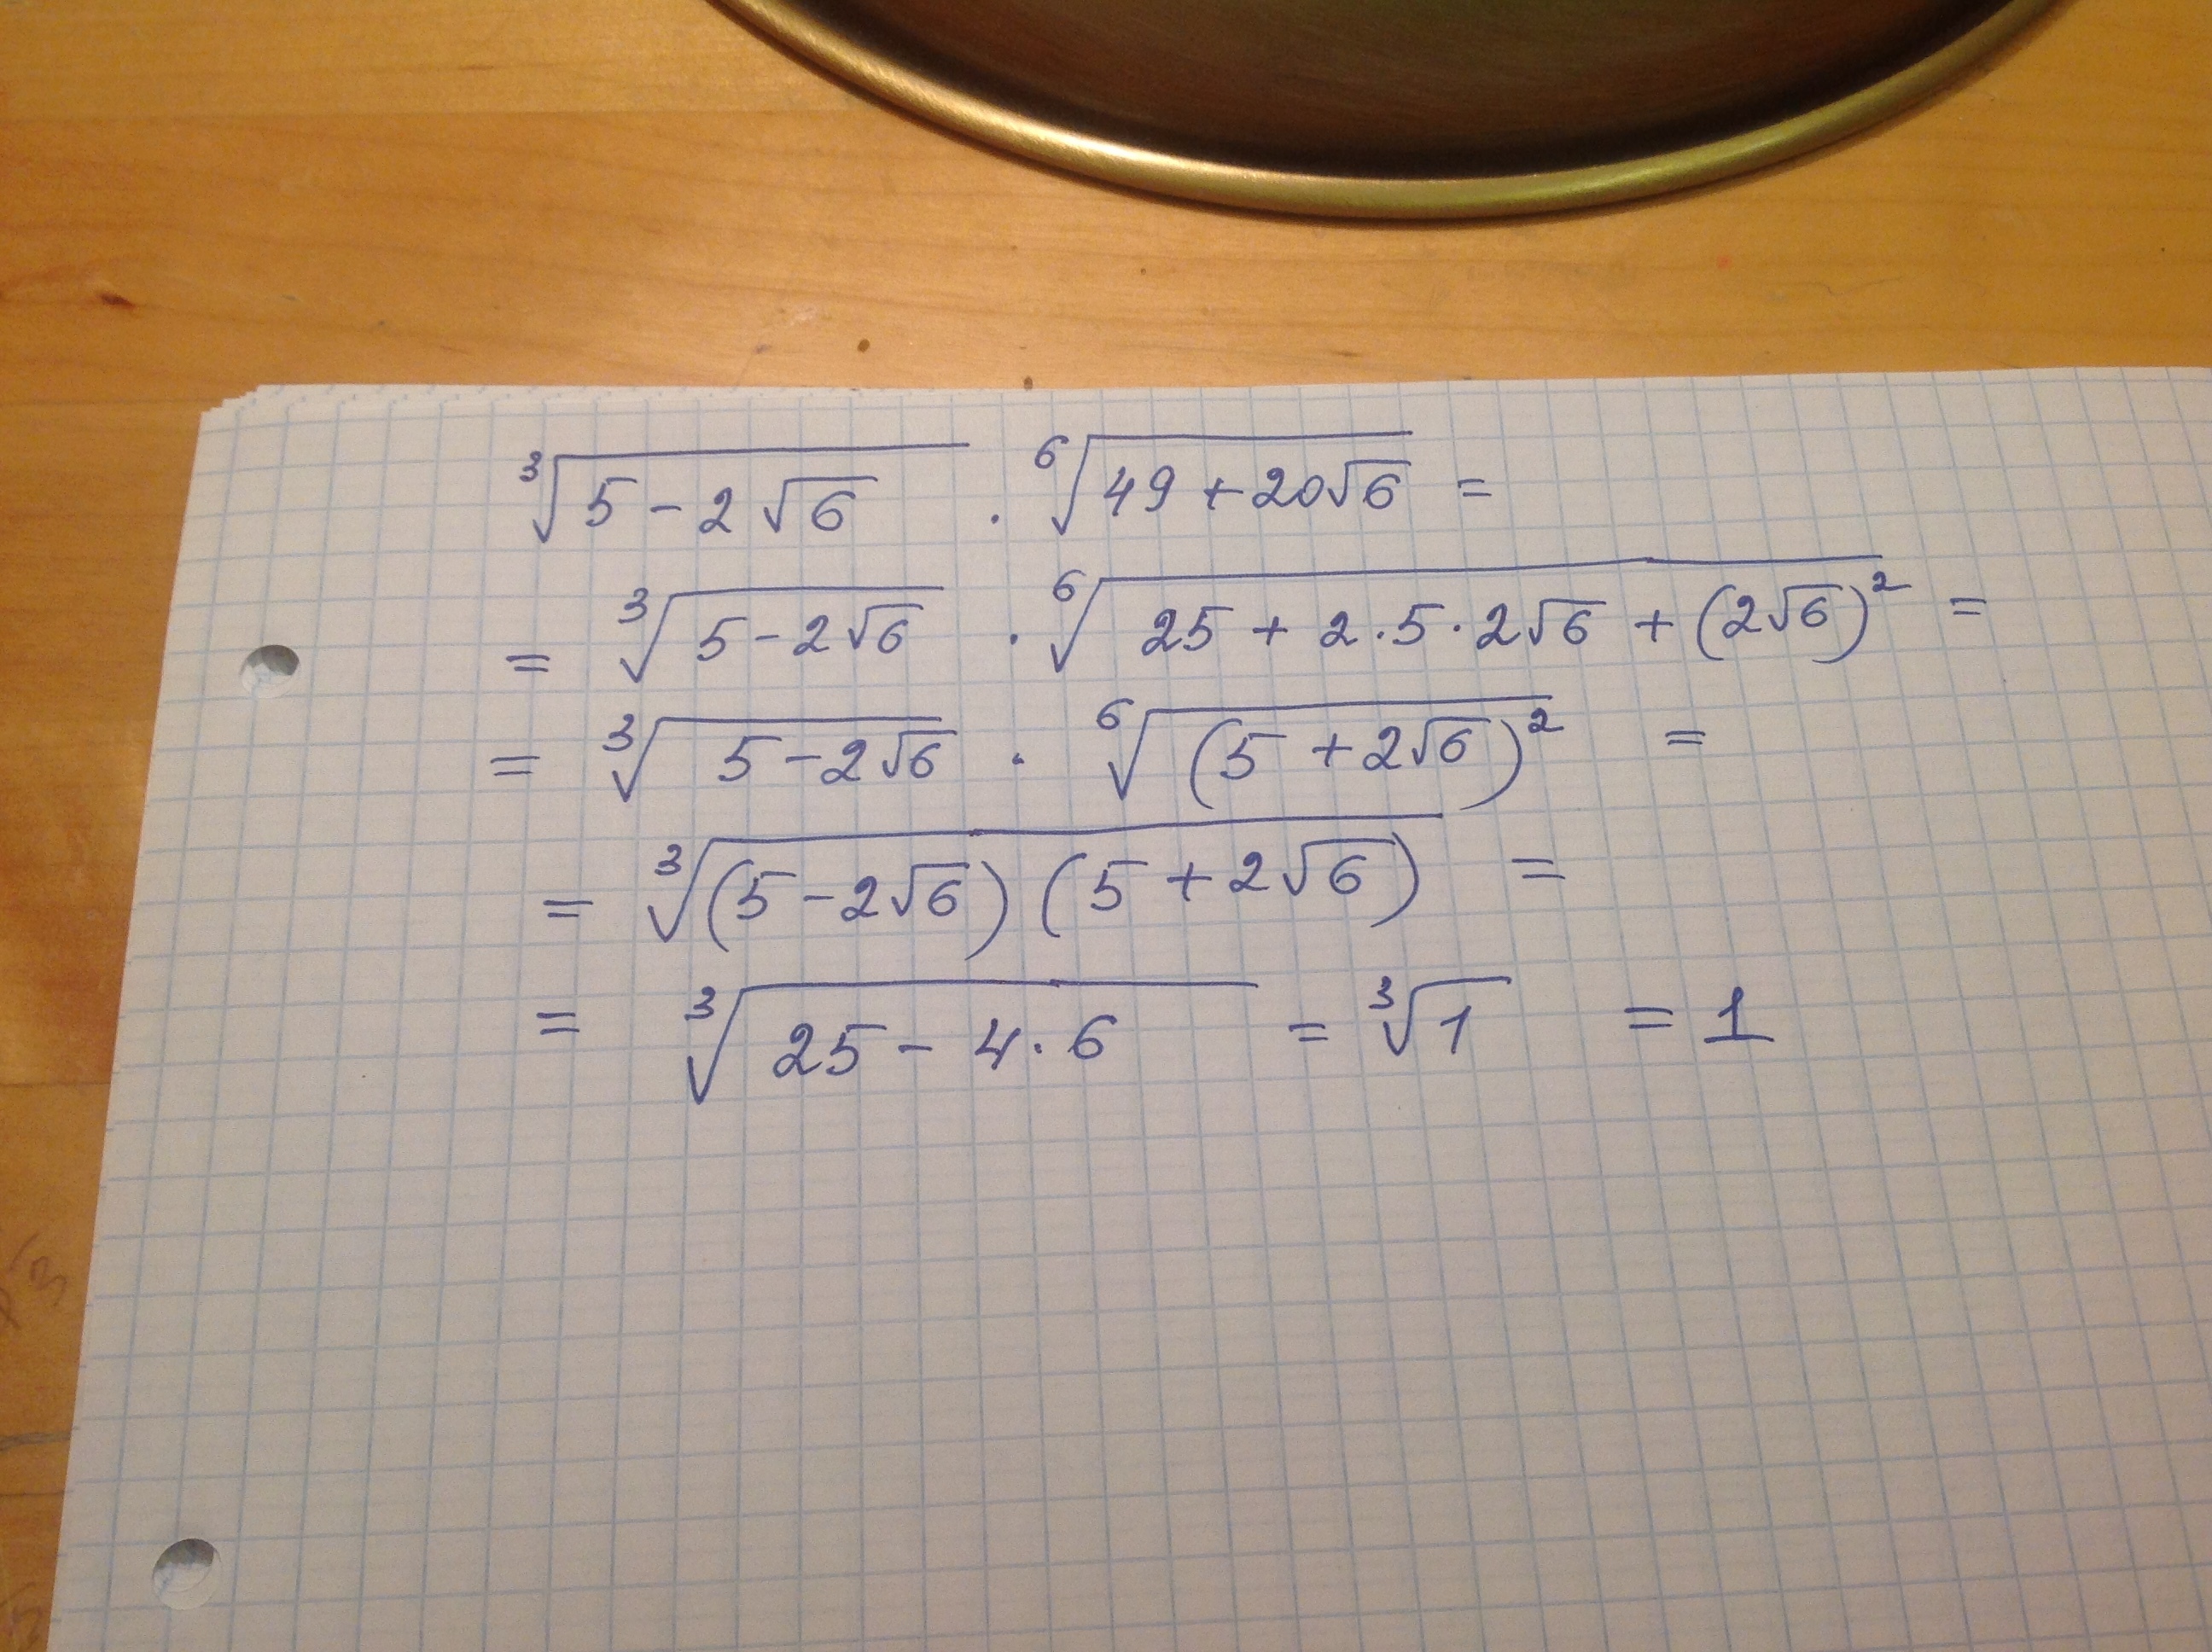 ∛(5 − 2√6) · ⁶√(49 + 20√6) =
= ∛(5 − 2√6) · ⁶√(25 + 2·5·2√6 + (2√6)²) =
= ∛(5 − 2√6) · ⁶√((5 + 2√6)²) =
= ∛((5 − 2√6)(5 + 2√6)) =
= ∛(25 − 4·6) = ∛1 = 1